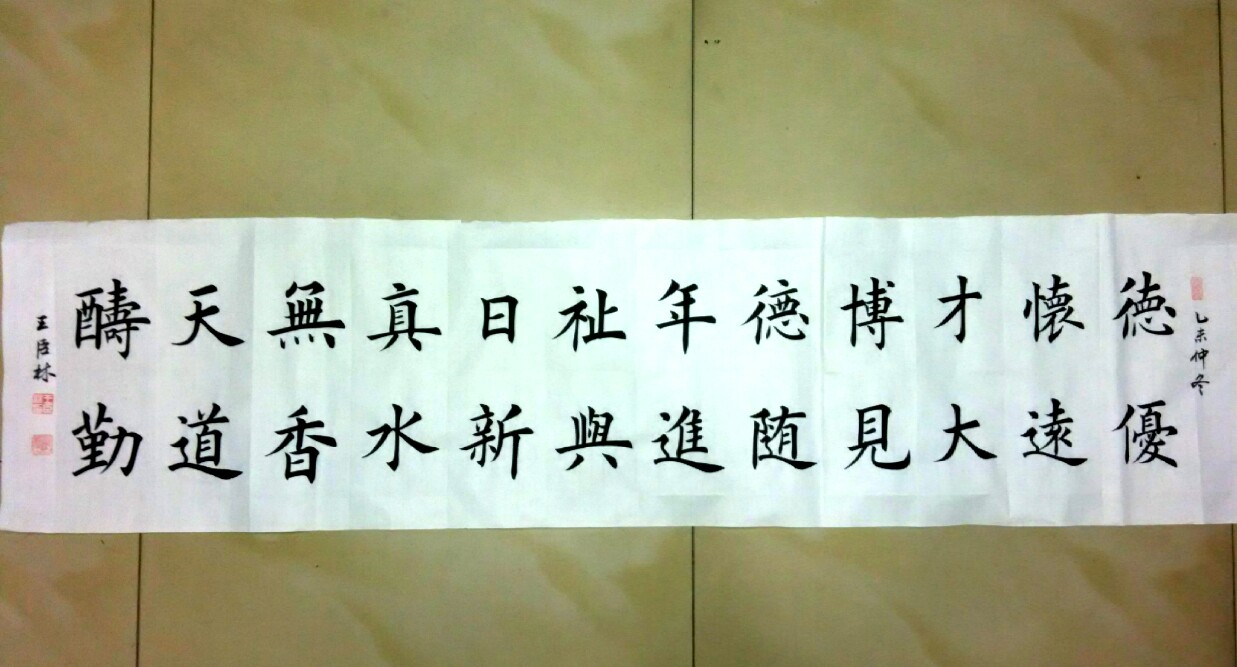 乙未仲冬
德優
懷遠
才大
博見
德随
年進
祉與
日新
真水
無香
天道
醻勤
王臣林